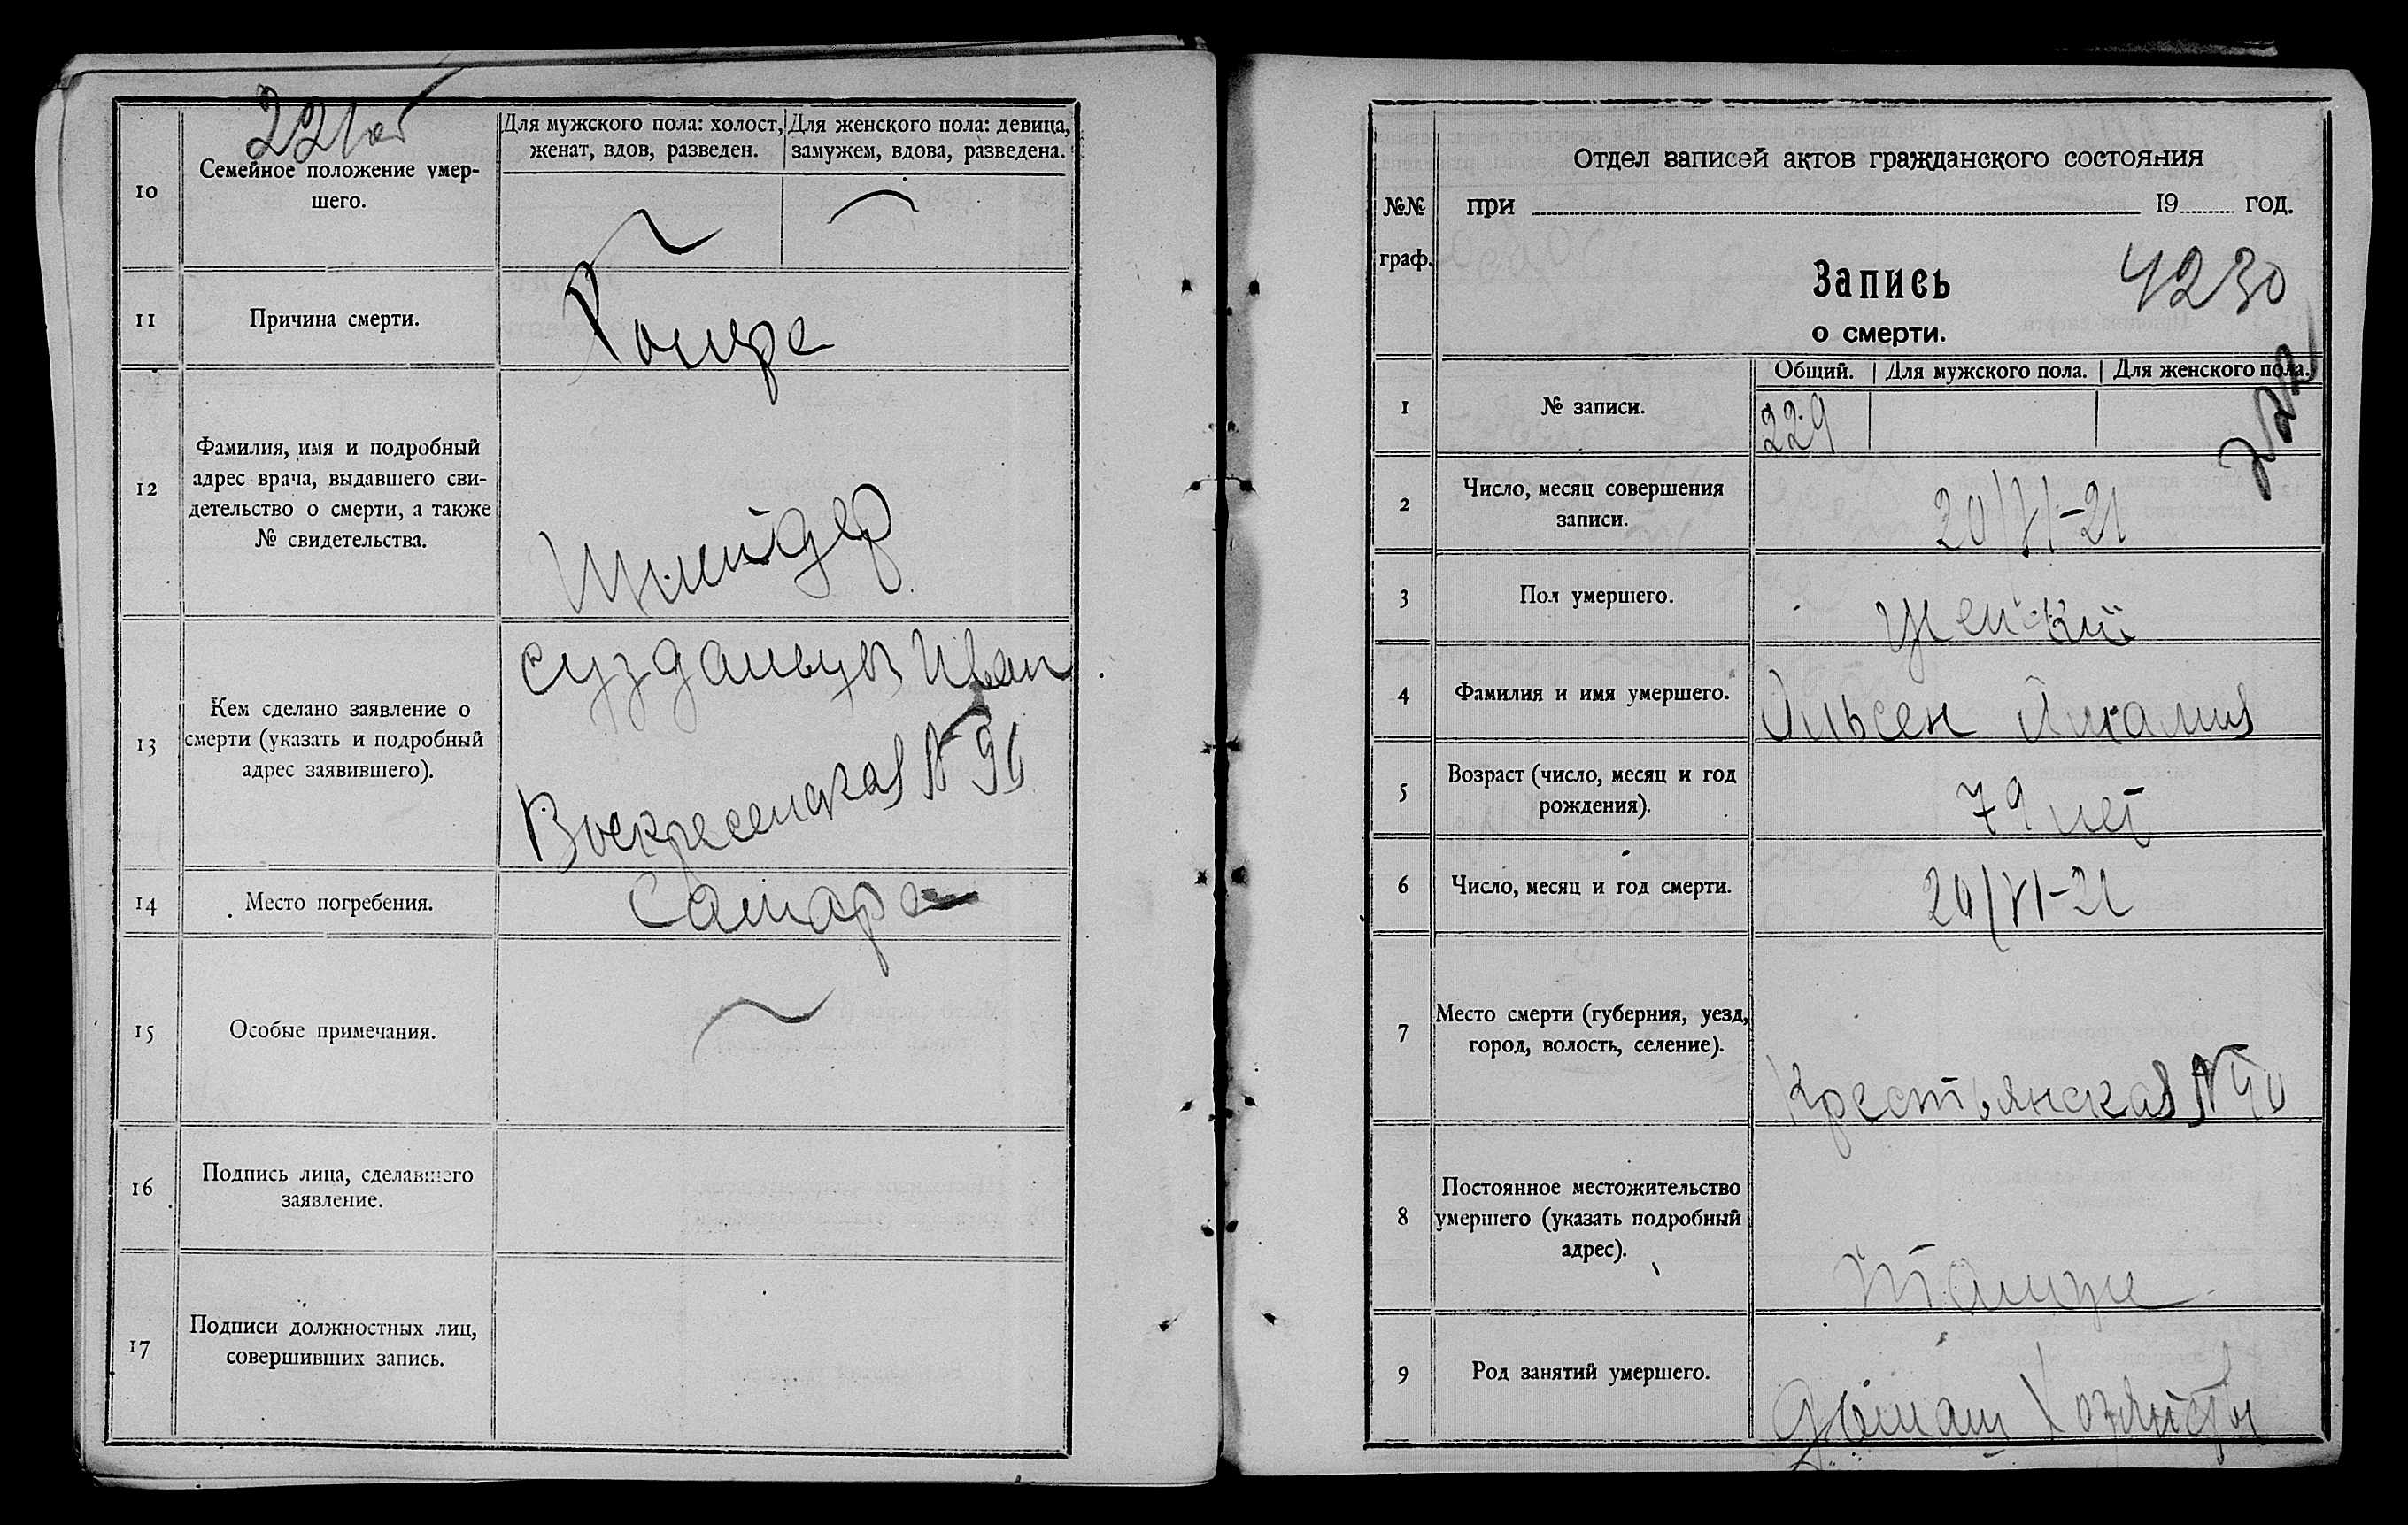 10
Семейное положение умер-
шего.
Для мужского пола: холост,
женат, вдов, разведен.
Для женского пола: девица,
замужем, вдова, разведена.
11
Причина смерти.
12
Фамилия, имя и подробный
адрес врача, выдавшего сви-
детельство о смерти, а также
№ свидетельства.
Шнейдер
13
Кем сделано заявление о
смерти (указать и подробный
адрес заявившего).
Суздальцов Иван
Воскресенская №
14
Место погребения.
Самара
15
Особые примечания.
16
Подпись лица, сделавшего
заявление.
17
Подписи должностных лиц,
совершивших запись.
№№
граф.
Отдел записей актов гражданского состояния
при 19 год.
Запись
о смерти.
4230
Общий. Для мужского пола. Для женского пола.
1
№ записи.
229
2
Число, месяц совершения
записи.
20/VI-21
3
Пол умершего.
женский
4
Фамилия и имя умершего.
Ольсен Амалия
5
Возраст (число, месяц и год
рождения).
79 лет
6
Число, месяц и год смерти.
20/VI-21
7
Место смерти (губерния, уезд,
город, волость, селение).
Крестьянская №
8
Постоянное местожительство
умершего (указать подробный
адрес).
Также
9
Род занятий умершего.
домаш хозяйств